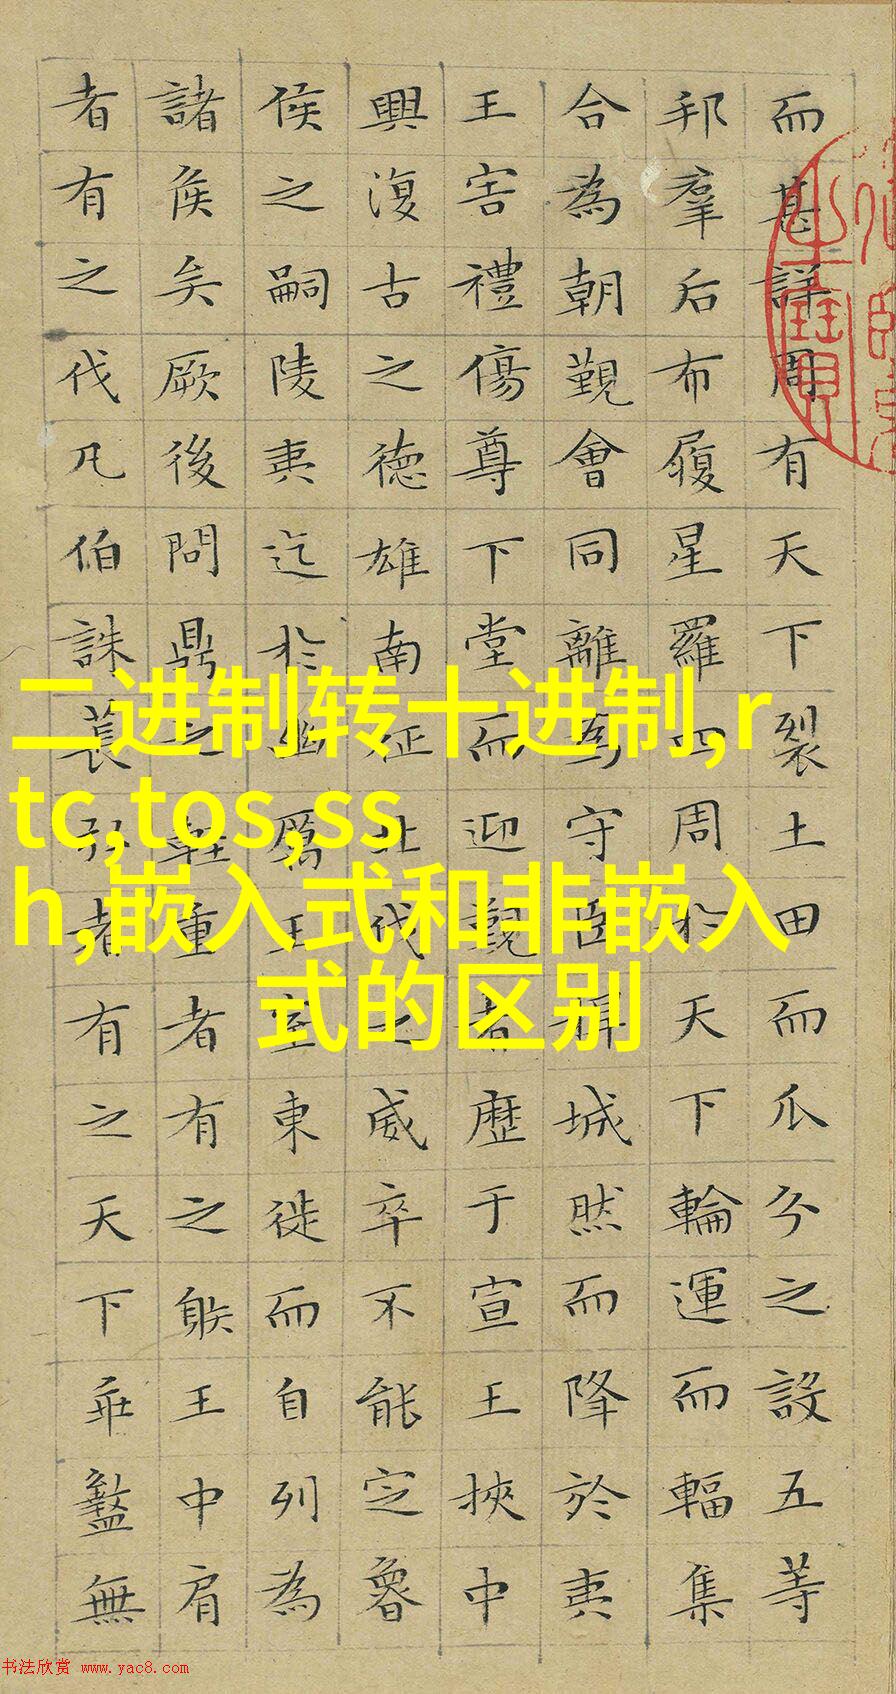 而甚詳周有天下裂土田而瓜分之設五等
邦羣后布履星羅四周於天下輪運而輻集
合為朝覲會同離為守臣扞城然而降於夷
王害禮傷尊下堂而迎覲者歷于宣王挾中
興復古之德雄南征北伐之威卒不能定魯
侯之嗣陵夷迄於幽厲王室東徙而自列為
諸侯矣厥後問鼎之輕重者有之䠶王中肩
者有之伐凡伯誅萇弘者有之天下乖盭無
二进制转十进制,r
tc,tos,ss
h,嵌入式和非嵌入
式的区别
书法欣赏 www.yac8.com